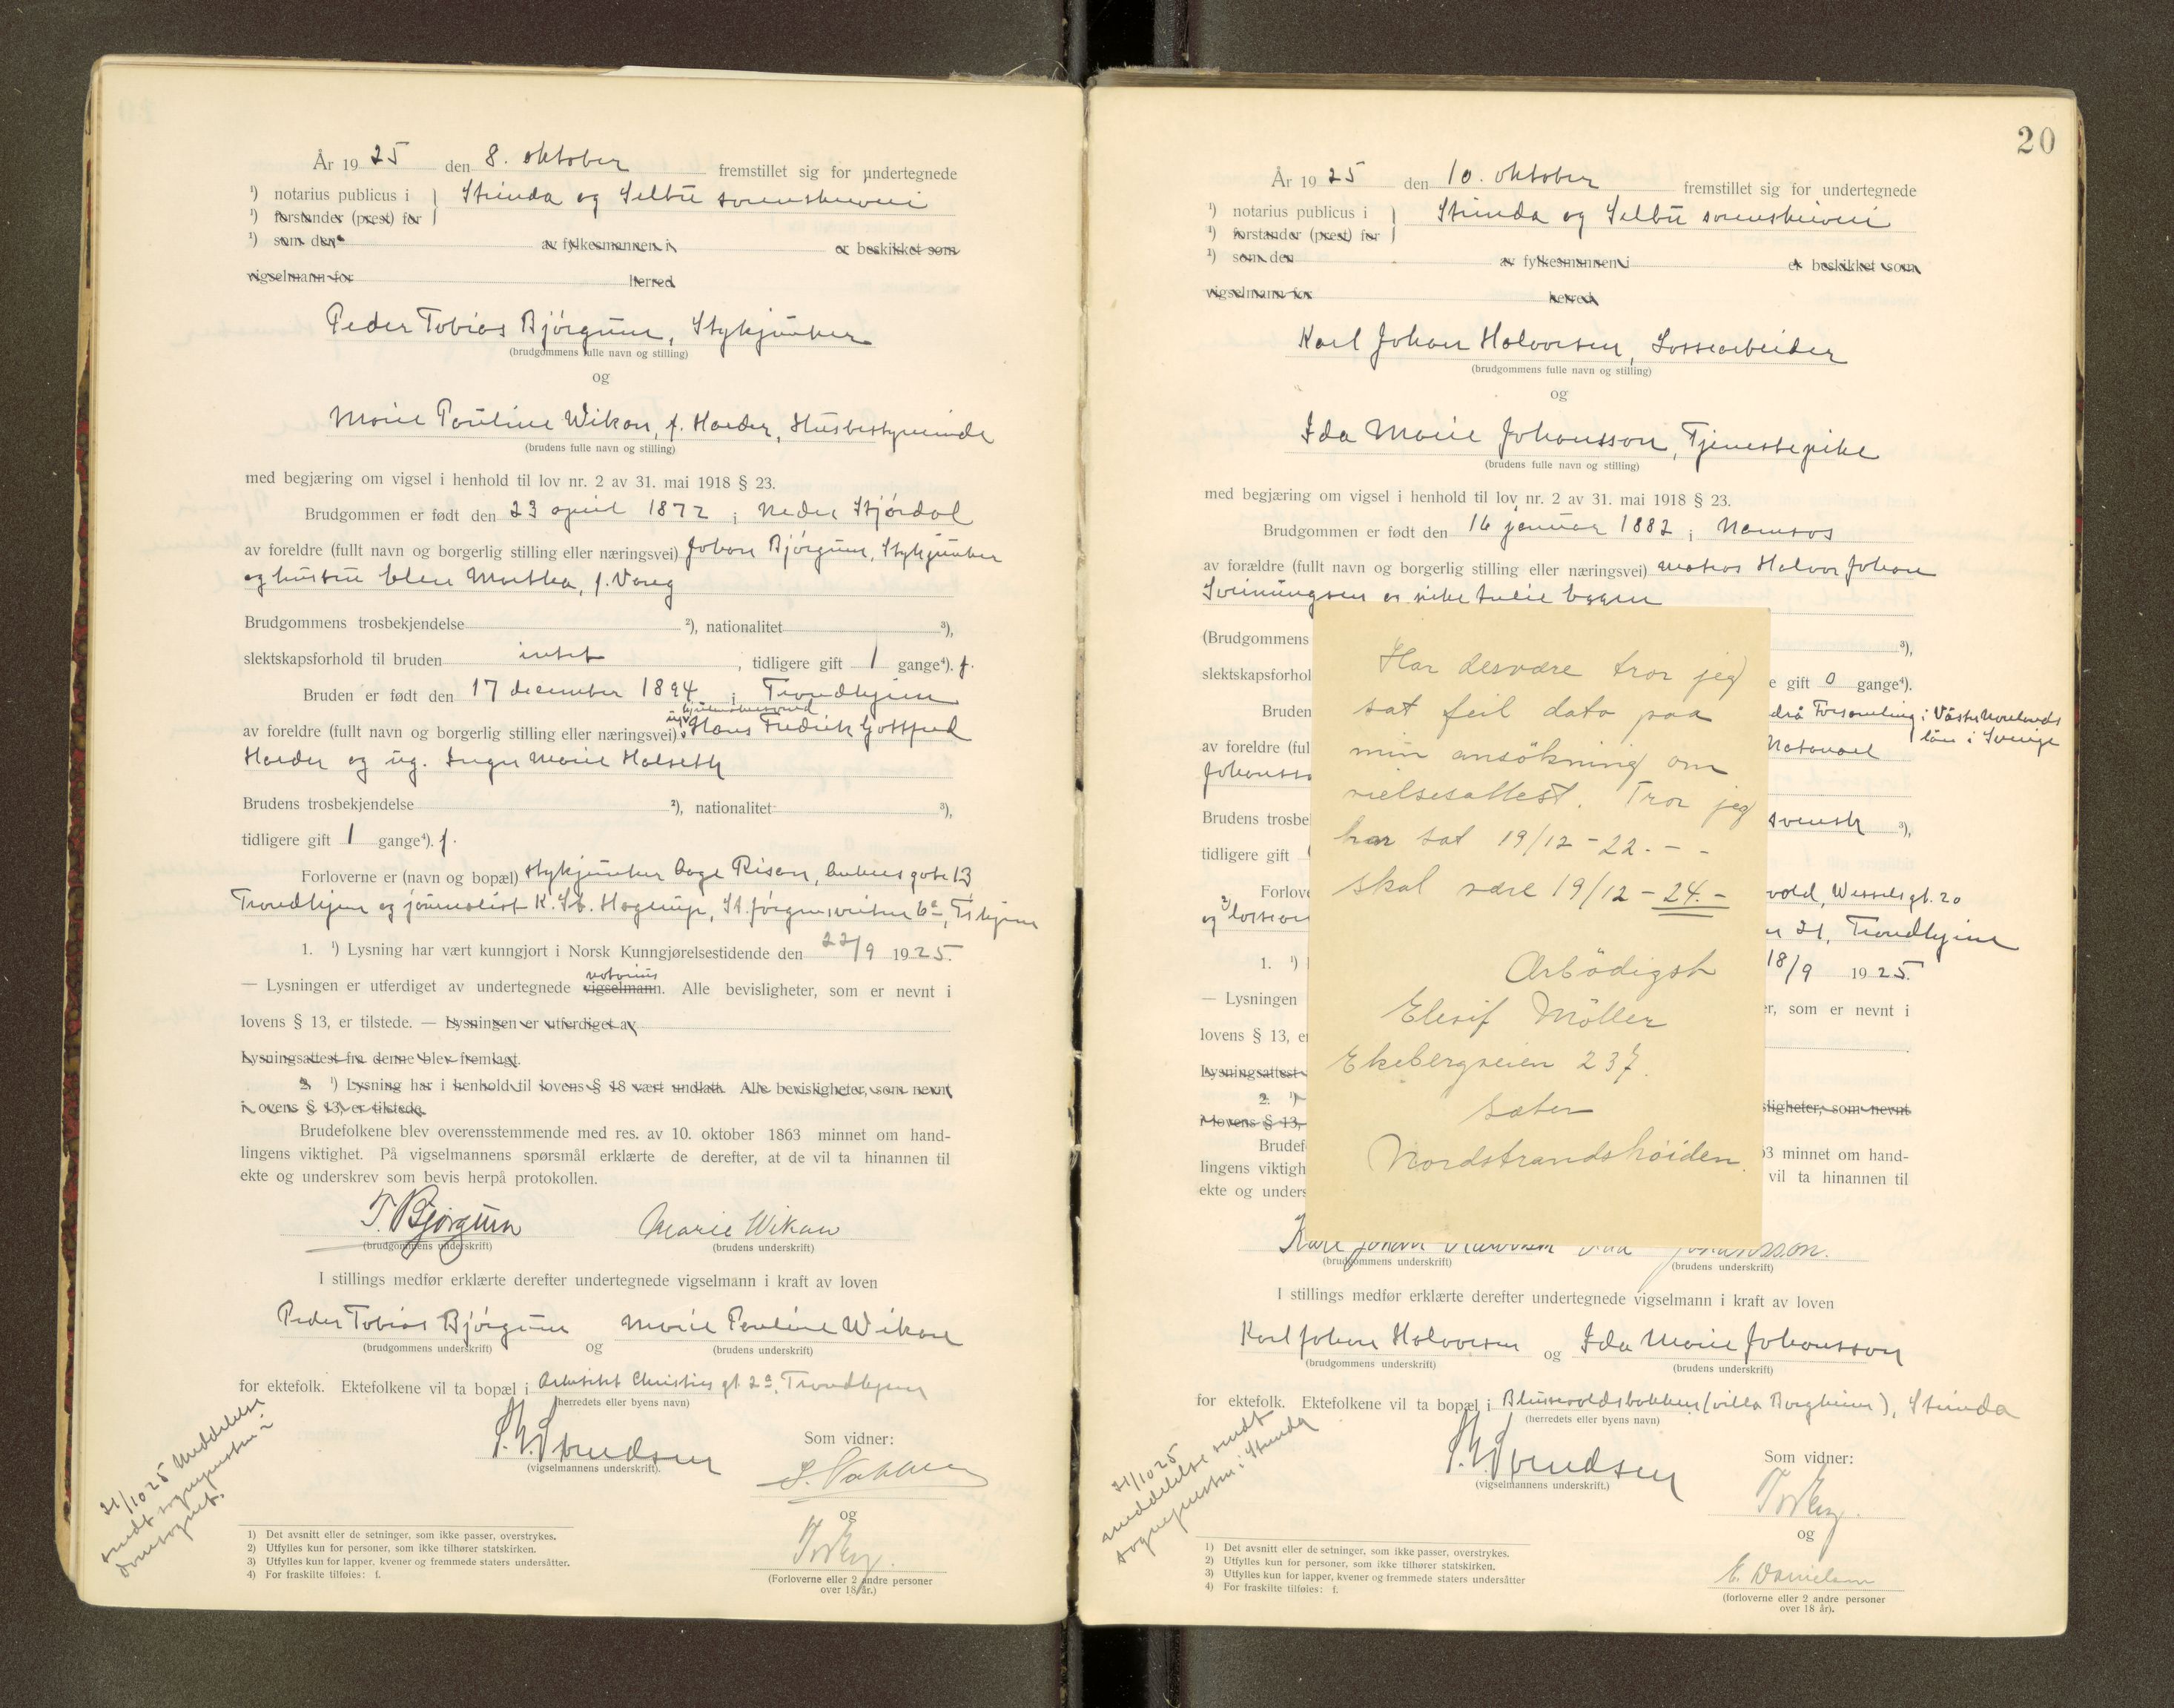 År 1925 den 8. oktober fremstillet sig for undertegnede
¹) notarius publicus i } Strinda og Selbu sorenskriveri
¹) forstander (prest) for
¹) som den av fylkesmannen i er beskikket som
vigselmann for herred
Peder Tobias Bjørgum, Stykjunker
(brudgommens fulle navn og stilling)
og
Marie Pauline Wikan, f. Harder, Husbestyrerinde
(brudens fulle navn og stilling)
med begjæring om vigsel i henhold til lov nr. 2 av 31. mai 1918 § 23.
Brudgommen er født den 23 april 1872 i Nedre Stjørdal
av foreldre (fullt navn og borgerlig stilling eller næringsvei) Johan Bjørgum, Stykjunker
og hustru Elen Martha, f. Vareg
Brudgommens trosbekjendelse ²), nationalitet ³),
slektskapsforhold til bruden intet, tidligere gift 1 gange⁴). f.
Bruden er født den 17 december 1894 i Trondhjem
av foreldre (fullt navn og borgerlig stilling eller næringsvei) Hans Fredrik Gottfred
Harder og ug. Inger Marie Halseth
Brudens trosbekjendelse ²), nationalitet ³),
tidligere gift 1 gange⁴). f.
Forloverne er (navn og bopæl) stykjunker Aage Risan, gate 13
Trondhjem og journalist K. St. Hagerup, St. Jørgensveiten 6ᵃ, T.hjem
1. ¹) Lysning har vært kunngjort i Norsk Kunngjørelsestidende den 22/9 1925.
notarius
— Lysningen er utferdiget av undertegnede vigselmann. Alle bevisligheter, som er nevnt i
lovens § 13, er tilstede. — Lysningen er utferdiget av
Lysningsattest fra denne blev fremlagt.
2. ¹) Lysning har i henhold til lovens § 18 vært undlatt. Alle bevisligheter, som nevnt
i lovens § 13, er tilstede.
Brudefolkene blev overensstemmende med res. av 10. oktober 1863 minnet om hand-
lingens viktighet. På vigselmannens spørsmål erklærte de derefter, at de vil ta hinannen til
ekte og underskrev som bevis herpå protokollen.
T. Bjørgum Marie Wikan
(brudgommens underskrift) (brudens underskrift)
I stillings medfør erklærte derefter undertegnede vigselmann i kraft av loven
Peder Tobias Bjørgum og Marie Pauline Wikan
(brudgommens underskrift) (brudens underskrift)
for ektefolk. Ektefolkene vil ta bopæl i Arkitekt Christies gt. 2ᵃ, Trondhjem
(herredets eller byens navn)
(vigselmannens underskrift).
Som vidner:
og
(Forloverne eller 2 andre personer
over 18 år.)
21/10 25 Meddelelse
sendt sognepresten i
domsognet.
1) Det avsnitt eller de setninger, som ikke passer, overstrykes.
2) Utfylles kun for personer, som ikke tilhører statskirken.
3) Utfylles kun for lapper, kvener og fremmede staters undersåtter.
4) For fraskilte tilføies: f.
20
År 1925 den 10. oktober fremstillet sig for undertegnede
¹) notarius publicus i } Strinda og Selbu sorenskriveri
¹) forstander (prest) for
¹) som den av fylkesmannen i er beskikket som
vigselmann for herred
Karl Johan Halvorsen, Lossearbeider
(brudgommens fulle navn og stilling)
og
Ida Marie Johansson, Tjenestepike
(brudens fulle navn og stilling)
med begjæring om vigsel i henhold til lov nr. 2 av 31. mai 1918 § 23.
Brudgommen er født den 16 januar 1882 i Namsos
av forældre (fullt navn og borgerlig stilling eller næringsvei) matros Halvor Johan
(Brudgommens ³),
slektskapsforhol e gift 0 gange⁴).
Bruden Forsamling i Västernorrlands
län i Sverige
av foreldre (ful Natanael
Johansso
Brudens trosbe svensk ³),
tidligere gift
Forlove vold, Wesselsgt. 20
21, Trondhjem
1. ¹) 18/9 1925.
— Lysningen er, som er nevnt i
lovens § 13, er
Lysningsattest
2. ¹) sligheter, som nevnt
i lovens § 13,
Brudef 63 minnet om hand-
lingens viktigh vil ta hinannen til
ekte og unders
Har desværre tror jeg
sat feil dato paa
min ansökning om
vielsesattest. Tror jeg
har sat 19/12 - 22. - -
skal være 19/12 - 24. -
Ærbödigst
Elesif Möller
Ekebergveien 237.
Sæter
Nordstrandshöiden.
Karl Johan Halvorsen Ida Johansson.
(brudgommens underskrift) (brudens underskrift)
I stillings medfør erklærte derefter undertegnede vigselmann i kraft av loven
Karl Johan Halvorsen og Ida Marie Johansson
(brudgommens underskrift) (brudens underskrift)
for ektefolk. Ektefolkene vil ta bopæl i Blussuvoldsbakken (villa Borgheim), Strinda
(herredets eller byens navn)
(vigselmannens underskrift.)
Som vidner:
og
E. Danielsen
(forloverne eller 2 andre personer
over 18 år).
21/10 25
meddelelse sendt
sognepresten i Strinda
1) Det avsnitt eller de setninger, som ikke passer, overstrykes.
2) Utfylles kun for personer, som ikke tilhører statskirken.
3) Utfylles kun for lapper, kvener og fremmede staters undersåtter
4) For fraskilte tilføies: f.